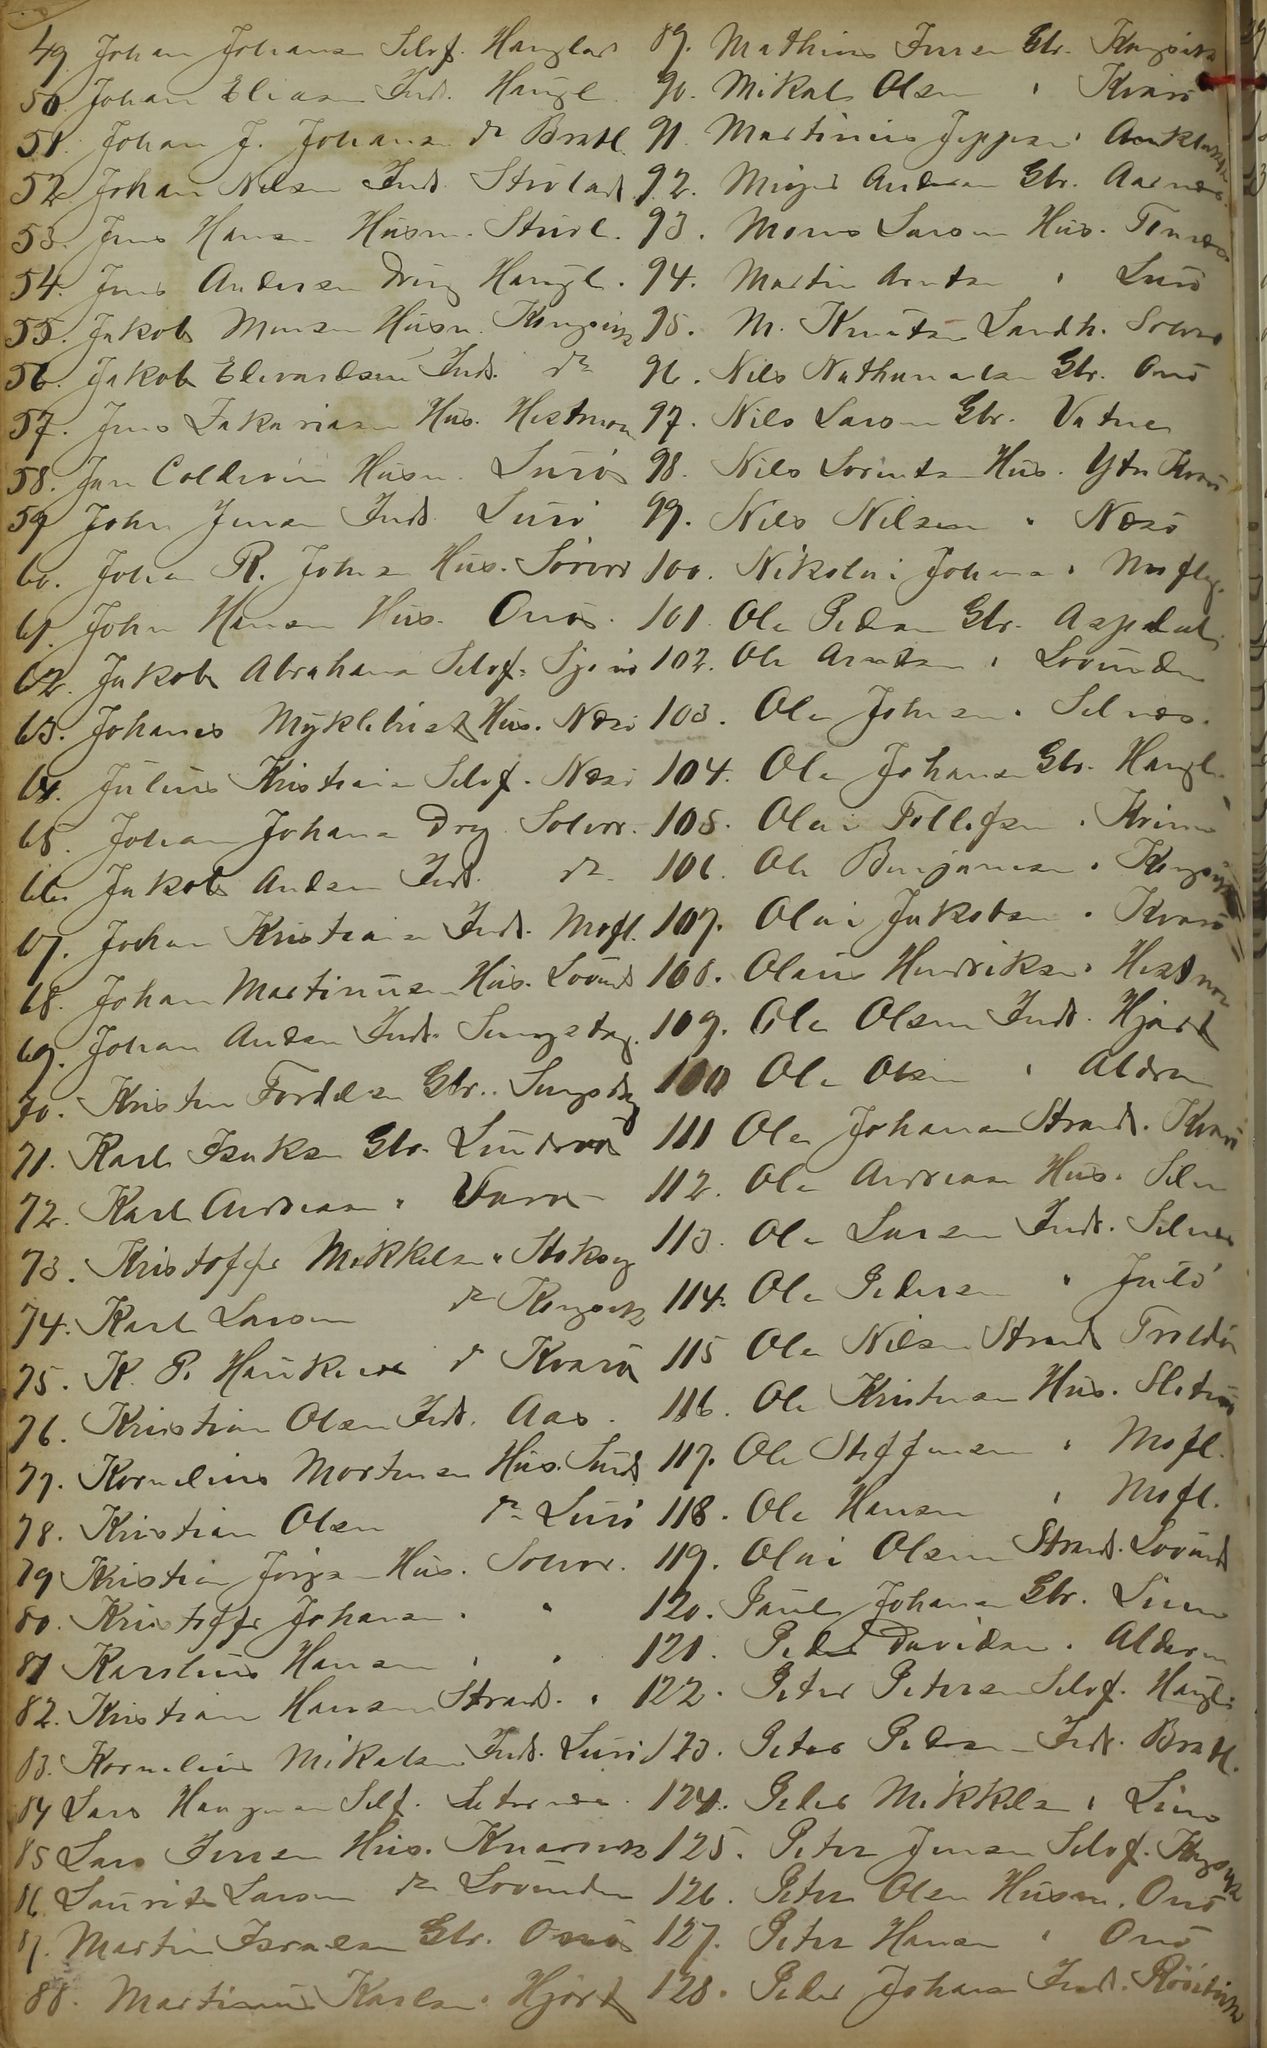 49 Johan Johansen Selvf. Hauglad
50 Johan Eliasen Inds. Haugl.
51. Johan J. Johansen do Bratl.
52 Johan Nilsen Inds. Stuvlad
53. Jens Hansen Husm. Stuvl.
54. Jens Andersen Dreng Haugl.
55. Jakob Monsen Husm. Kongsvik
56. Jakob Edvardsen Inds. do
57. Jens Zakariasen Hus. Hestmon
58. Jan Coldevin Husm. Lurö
59 John Jensen Inds. Lurö
60. Johan R. Johnsen Hus. Sörver
61. John Hansen Hus. Onös.
62. Jakob Abrahams Selvf.
63. Johanes Myklebust Hus. Næsö
64. Julius Kristians Selvf. Næsö
65. Johan Johans Drg. Solvær.
66. Jakob Andsen Inds. do
67. Johan Kristiansen Inds. Mofl.
68. Johan Martinusen Hus. Lovund
69. Johan Andsen Inds.
70. Kristen Tordelsen Gbr.
71. Karl Isaksen Gbr.
72. Karl Andreasen "
73. Kristoffer Mikkelsen "
74. Karl Larsen do Kongsvik
75. K. P. do Kvarö
76. Kristian Olsen Inds. Aas.
77. Kornelius Mortensen Hus.
78. Kristian Olsen do Lurö
79 Kristian Jörgsen Hus. Solvær.
80. Kristoffer Johansen " "
81 Karelius Hansen " "
82. Kristian Hansen Strands. "
83. Kornelius Mikalsen Inds. Lurö
84 Lars Selvf.
85 Lars Jensen Hus.
86. Laurits Larsen do Lovunden
87. Martin Israelsen Gbr. Onös
88. Martinus Karlsen " Hjört
89. Mathias Jensen Gbr. Kongsvik
90. Mikal Olsen " Kvarö
91. Martinius Jeppesen "
92. Andersen Gbr. Aarnæs.
93. Mons Larsen Hus. Tonnes
94. Martin Arntsen " Lurö
95. M. Knutsen Landh. Solvær
96. Nils Nathanaelsen Gbr. Onö
97. Nils Larsen Gbr. Vatne
98. Nils Lorentsen Hus. Ytr Kvarö
99. Nils Nilsen " Næsö
100. Nikolai Johansen " Moflag.
101. Ole Pedersen Gbr.
102. Ole Arntsen " Lovunden
103. Ole Johnsen " Selnæs.
104. Ole Johansen Gbr. Haugl.
105. Olai Tollefsen "
106. Ole Benjaminsen " Kongsvik
107. Olai Jakobsen " Kvarö
108. Olaus Henriksen " Hestmon
109. Ole Olsen Inds. Hjört
110 Ole Olsen " Alderen
111 Ole Johansen Strands. Kvarö
112. Ole Andreasen Hus. Seln
113. Ole Larsen Inds. Selnes
114. Ole Pedersen "
115 Ole Nilsen Strands
116. Ole Kristensen Hus.
117. Ole Steffensen " Mofl.
118. Ole Hansen " Mofl.
119. Olai Olsen Strands. Lovund
120. Paul Johansen Gbr.
121. Peder Davidsen " Alderen
122. Peter Petersen Selvf. Haugl.
123. Peter Pedersen Inds. Bratl.
124. Peder Mikkelsen "
125. Peter Jensen Selvf. Kongsvik
126. Peter Olsen Husm. Onö
127. Peter Hansen " Onö
128. Peder Johansen Inds.